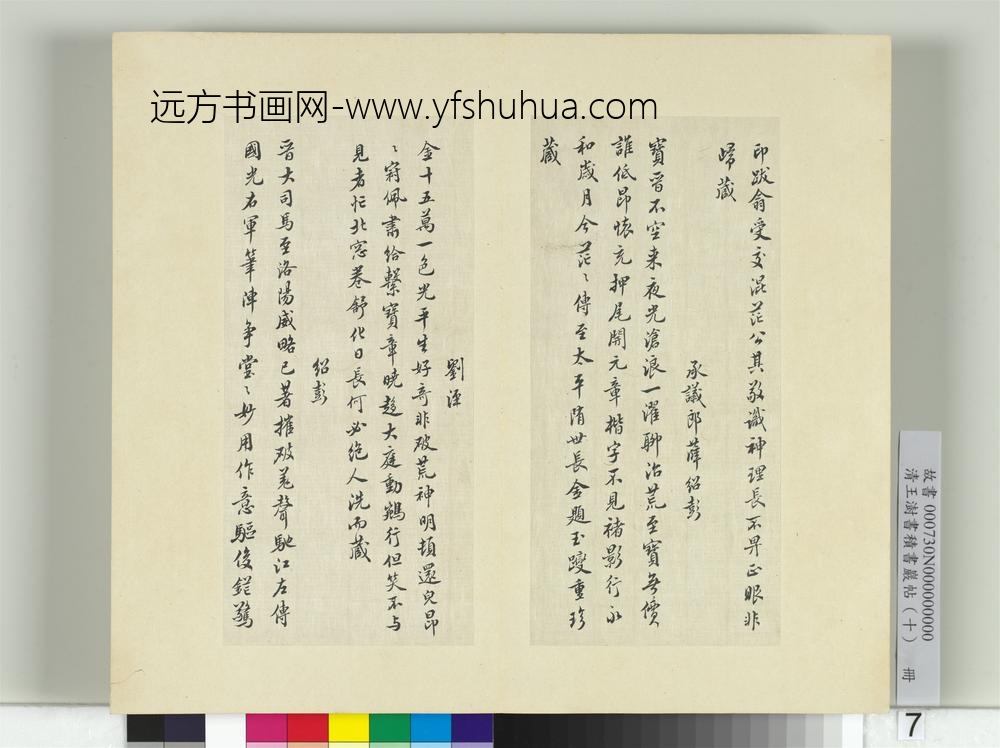 远方书画网-www.yfshuhua.com
印跋翕受交混茫公其敬識神理長不畀正眼非
歸藏
承議郎薛紹彭
寶晉不空來夜光滄浪一濯聊治荒至寶無價
誰低昂懷充押尾開元章楷字不見褚影行永
和歲月今茫〻傳至太平隋世長金題玉躞重珍
藏
劉涇
金十五萬一色光平生好奇非破荒神明頓還兒昂
〻冠佩肅給繫寶章曉趨大庭動鵷行但笑不与
見者忙北窓卷舒化日長何必絶人洗而藏
紹彭
晋大司馬至洛陽威略已著摧破羌聲馳江左傳
國光右軍筆陣争堂〻妙用作意驅俊鋩驚
故書000730N000000000
清王澍書積書巖帖(十) 冊
7